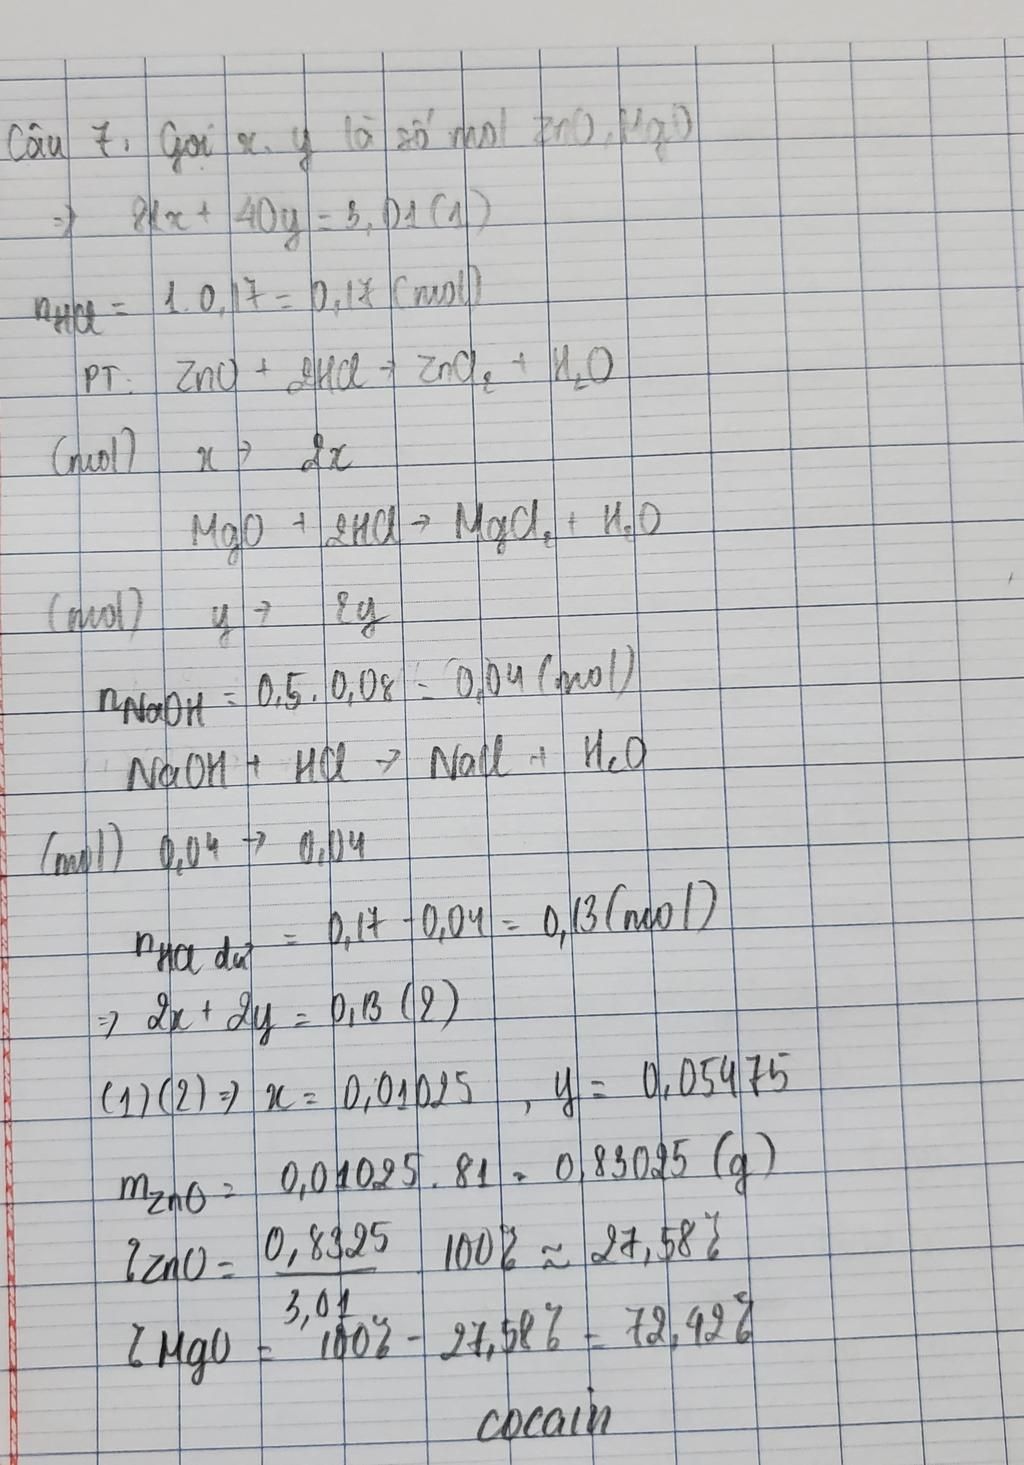 Câu 7. Gọi x, y là số mol ZnO, MgO
=> 81x + 40y = 3,01 (1)
nHCl = 1.0,17 = 0,17 (mol)
PT: ZnO + 2HCl → ZnCl₂ + H₂O
(mol) x → 2x
MgO + 2HCl → MgCl₂ + H₂O
(mol) y → 2y
nNaOH = 0,5.0,08 = 0,04 (mol)
NaOH + HCl → NaCl + H₂O
(mol) 0,04 → 0,04
nHCl dư = 0,17 - 0,04 = 0,13 (mol)
=> 2x + 2y = 0,13 (2)
(1)(2) => x = 0,01025 , y = 0,05475
mZnO = 0,01025.81 = 0,83025 (g)
%ZnO = 0,8325/3,01 100% ≈ 27,58%
%MgO = 100% - 27,58% = 72,42%
cocain